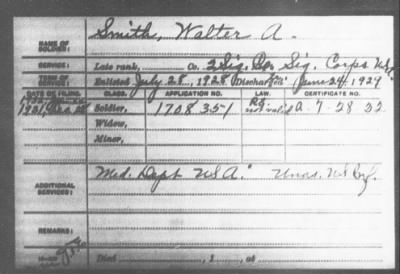 NAME OF SOLDIER: Smith, Walter A.
SERVICE: Late rank, Co. 2 Sig. Co. Sig. Corps USA
TERM OF SERVICE: Enlisted July 28, 1928 Discharged June 24, 1929
DATE OF FILING. CLASS. APPLICATION NO. LAW. CERTIFICATE NO.
1931, Soldier, 1708351 A-7-28-32
Widow,
Minor,
ADDITIONAL SERVICES: Med. Dept. U S A. Unas. US
REMARKS:
Died , 1 , at